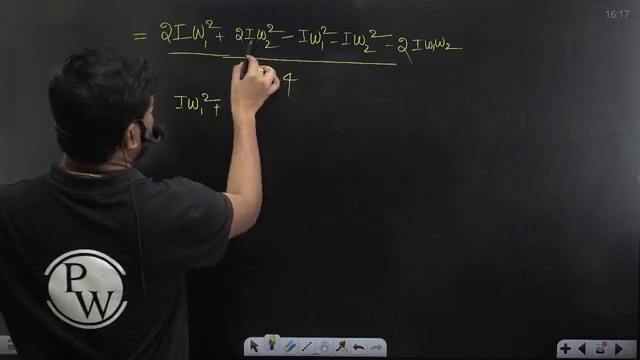 16:17
= 2Iω₁² + 2Iω₂² - Iω₁² - Iω₂² - 2Iω₁ω₂
4
Iω₁² +
PW